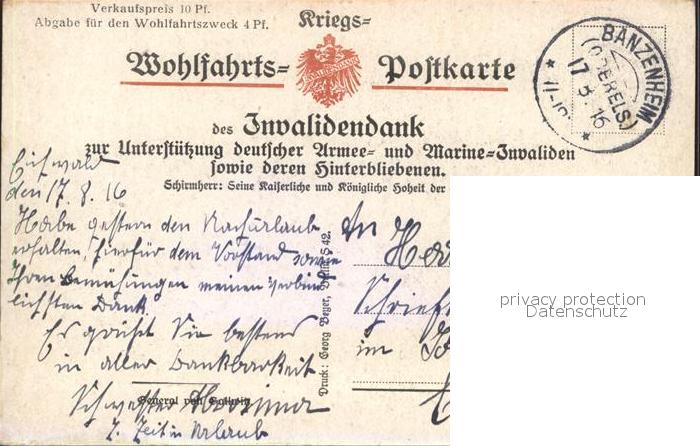 Verkaufspreis 10 Pf.
Abgabe für den Wohlfahrtszweck 4 Pf.
Kriegs=
Wohlfahrts= Postkarte
INVALIDENDANK
des Invalidendank
zur Unterstützung deutscher Armee= und Marine=Invaliden
sowie deren Hinterbliebenen.
Schirmherr: Seine Kaiserliche und Königliche Hoheit der
BANZENHEIM
(OBERELS.)
17.8.16
Eichwald
den 17. 8. 16
Habe gestern den Nachurlaub
erhalten, hierfür dem Vorstand sowie
Ihren Bemühungen meinen verbind
lichsten Dank.
Es grüßt Sie bestens
in aller Dankbarkeit
Schwester
z. Zeit in Urlaub
An
Schrift
im
General von
Druck: Georg Beyer, Berlin S 42.
privacy protection
Datenschutz